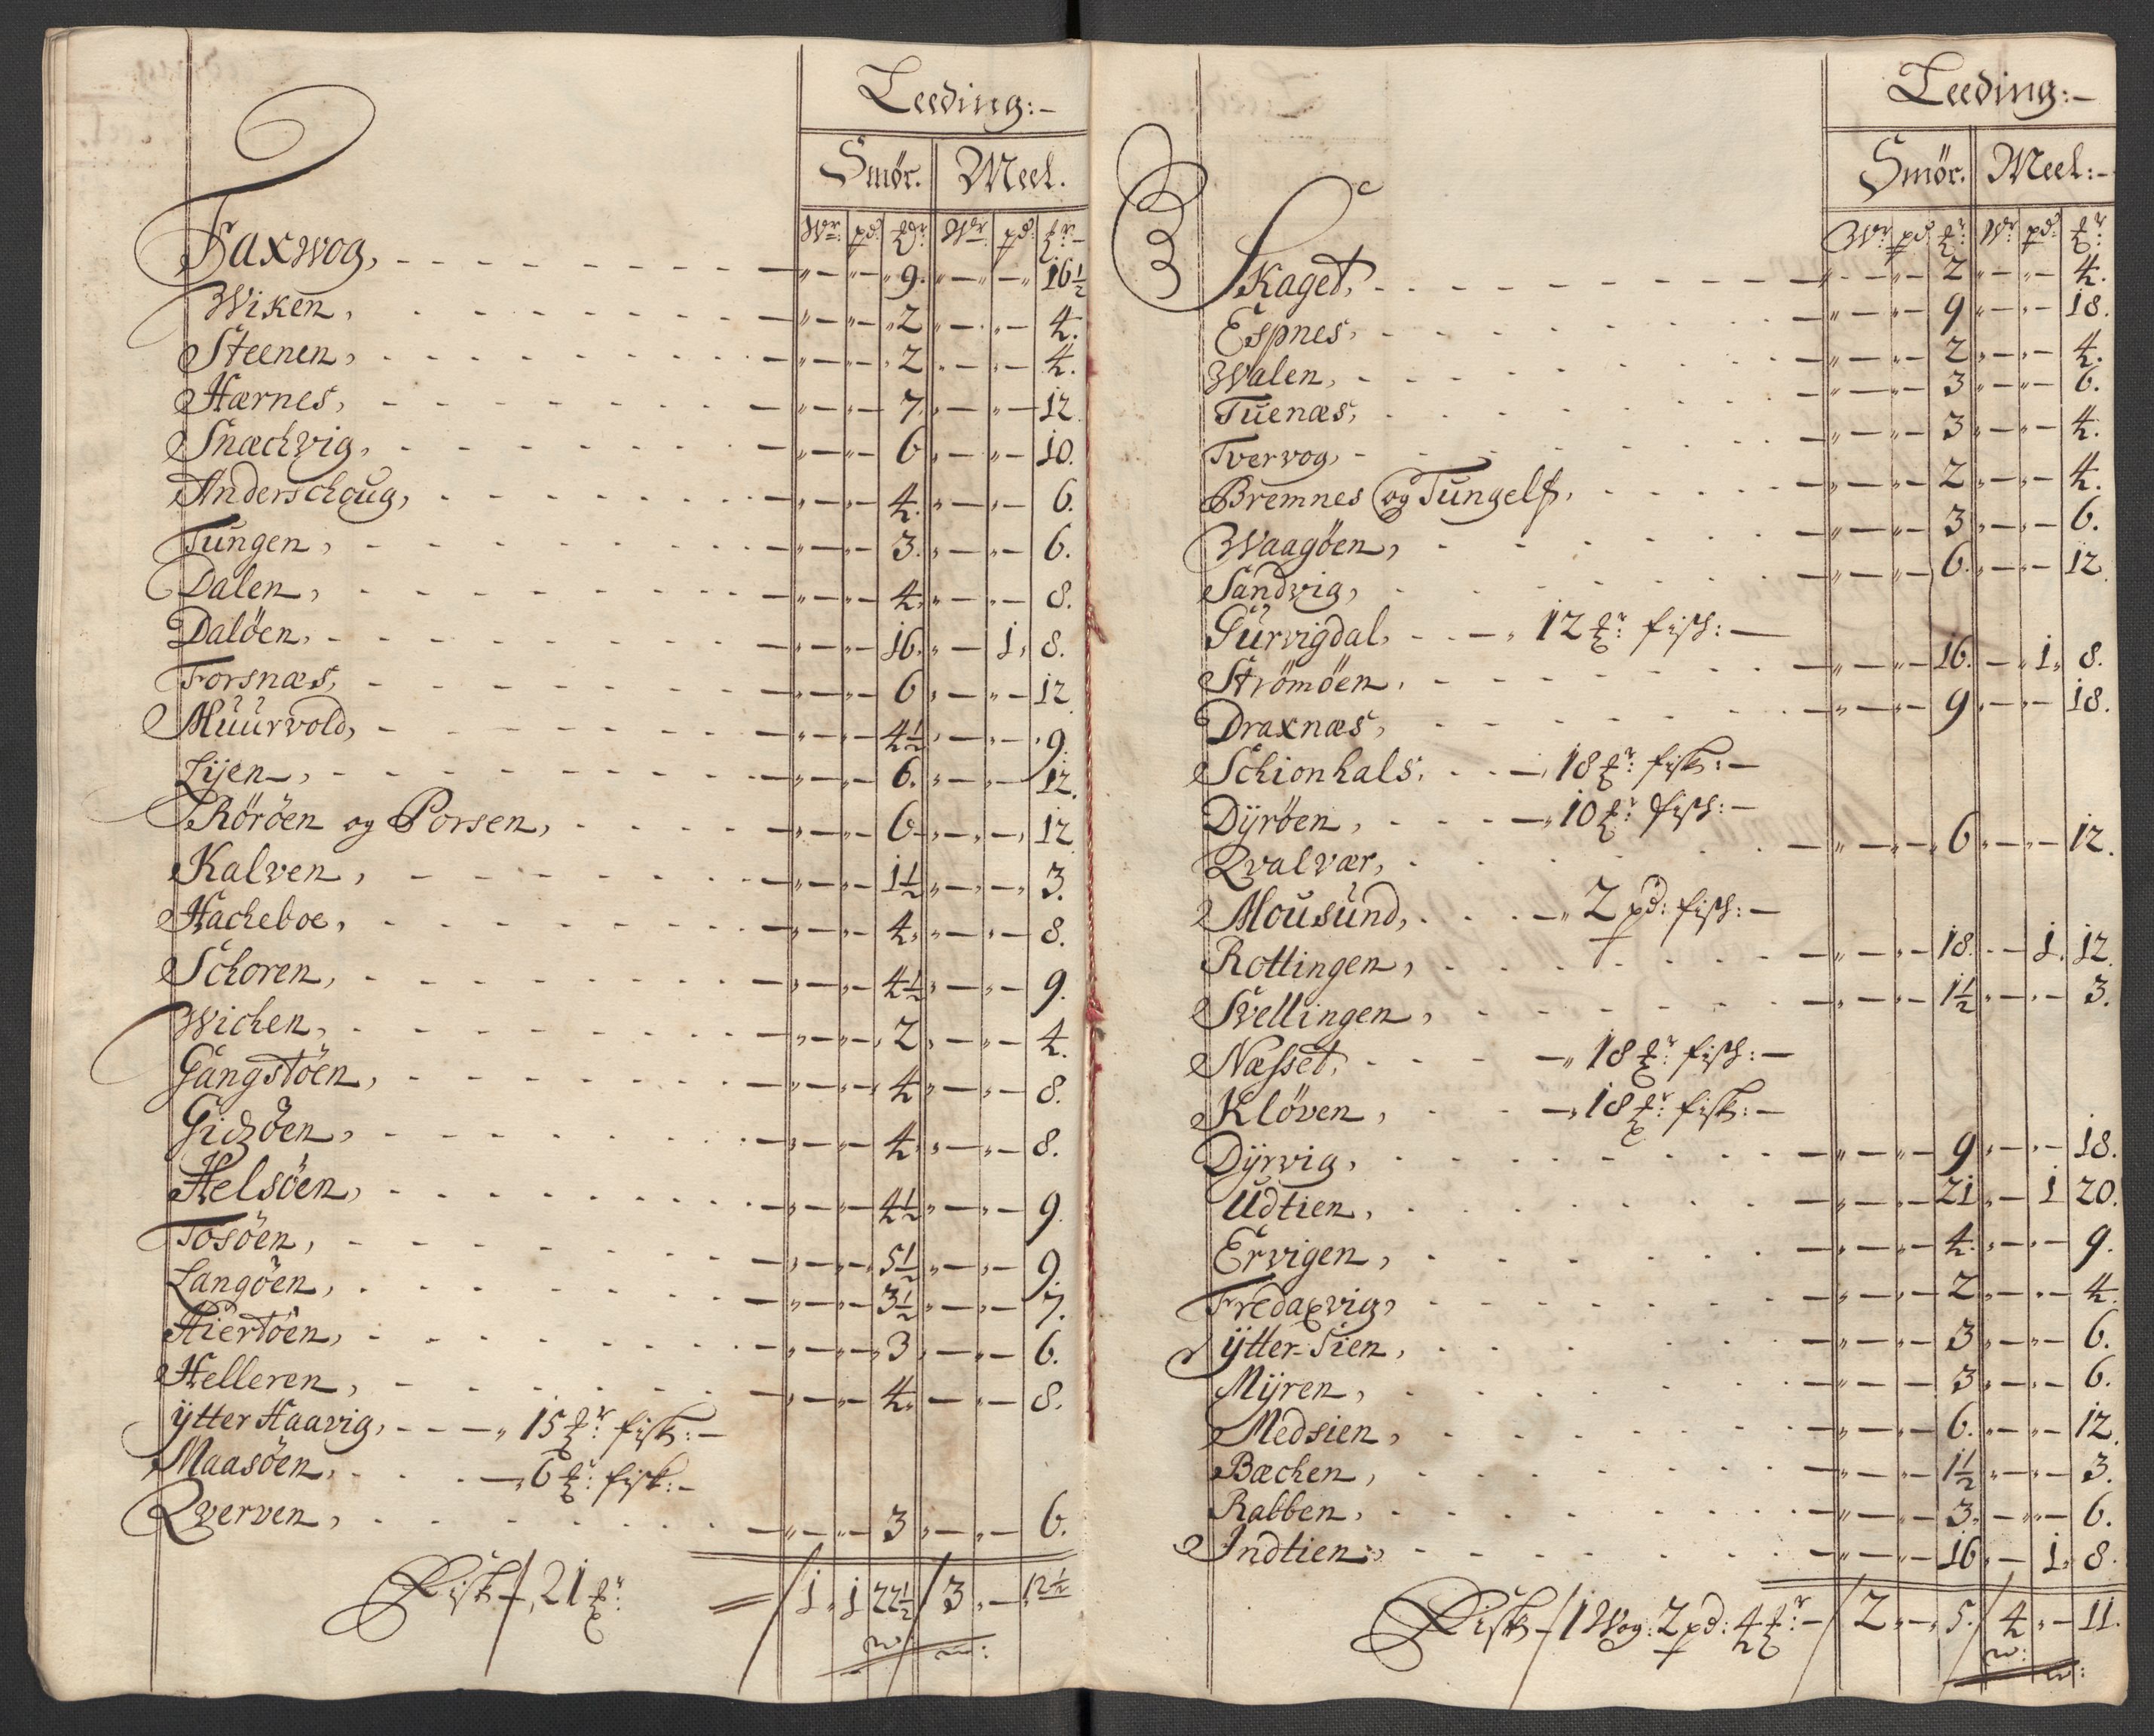 Leeding:-
Smør. Meel.
Wr: pd: ℔r: Wr: pd: ℔r:-
Faxwog, - - - „ - „ - „ 9. „ - „ - „ 16½
Wiken, - - - „ - „ - „ 2 „ - „ - 4.
Steenen, - - - „ - „ - „ 2 „ - „ - 4.
Hærnes, - - - „ - „ - 7. „ - „ - 12
Snæchvig, - - - „ - „ - 6 „ - „ - 10.
Anderschoug, - - - „ - „ - 4. „ - „ - 6.
Tungen, - - - „ - „ - 3. „ - „ - 6.
Dalen, - - - „ - „ - 4. „ - „ - 8.
Daløen, - - - „ - „ - 16. „ - 1. 8.
Forsnæs, - - - „ - „ - 6 „ - „ - 12
Muurvold, - - - „ - „ - 4½ „ - „ - 9.
Lijen, - - - „ - „ - 6. „ - „ - 12.
Röröen og Porsen, - - - „ - „ - 6 „ - „ - 12
Kalven, - - - „ - „ - 1½ „ - „ - 3.
Hacheboe, - - - „ - „ - 4. „ - „ - 8.
Schoren, - - - „ - „ - 4½ „ - „ - 9.
Wichen, - - - „ - „ - 2 „ - „ - 4.
Gangstöen, - - - „ - „ - 4 „ - „ - 8.
Gidzöen, - - - „ - „ - 4. „ - „ - 8.
Helsöen, - - - „ - „ - 4½ „ - „ - 9.
Tosöen, - - - „ - „ - 5½ „ - „ - 9.
Langöen, - - - „ - „ - 3½ „ - „ - 7.
Hiertöen, - - - „ - „ - 3 „ - „ - 6.
Helleren, - - - „ - „ - 4. - „ - 8.
ÿtter Haavig, - - - „ 15 ℔r: fisk: -
Maasöen, - - - „ 6 ℔r: fisk: -
Qverven, - - - „ - „ - 3 „ - „ - 6.
Fisk - / „ 21 ℔r: = / 1 „ 1 22½ / 3 „ - 12½
Leeding:-
Smør. Meel:-
Wr: pd: ℔r: Wr: pd: ℔r:
Skaget, - - - „ - „ - 2 „ - „ - 4.
Espnes, - - - „ - „ - 9 „ - „ - 18.
Walen, - - - „ - „ - 2 „ - „ - 4.
Tuenæs, - - - „ - „ - 3 „ - „ - 6.
Tvervog, - - - „ - „ - 3 „ - „ - 4.
Bremnes og Tungelf, - - - „ - „ - 2 „ - „ - 4.
Waagöen, - - - „ - „ - 3 „ - „ - 6.
Sandvig, - - - „ - „ - 6. „ - „ - 12
Gurvigdal, - - - „ 12 ℔r: fisk: -
Strömöen, - - - „ - „ - 16. - „ 1. 8.
Draxnæs, - - - „ - „ - 9 „ - „ - 18.
Schionhals, - - - „ 18 ℔r: fisk: -
Dÿröen, - - - „ 10 ℔r: fisk: -
Qvalvær, - - - „ - „ - 6 „ - „ - 12.
Mousund, - - - „ 2 pd: fisk: -
Rottingen, - - - „ - „ - 18. - 1. 12
Svellingen, - - - „ - „ - 1½ „ - „ - 3.
Næsset, - - - „ 18 ℔r: fisk: -
Klöven, - - - „ 18 ℔r: fisk: -
Dÿrvig, - - - „ - „ - 9 „ - „ - 18.
Udtien, - - - „ - „ - 21 „ - 1 20.
Ervigen, - - - „ - „ - 4. „ - „ - 9.
Fredaxvig, - - - „ - „ - 2 „ - „ - 4.
ÿtter-Sien, - - - „ - „ - 3 „ - „ - 6.
Mÿren, - - - „ - - 3 „ - „ - 6.
Medsien, - - - „ - „ - 6. „ - „ - 12.
Bæchen, - - - „ - „ - 1½ „ - „ - 3.
Rabben, - - - „ - „ - 3. - „ - 6.
Indtien, - - - „ - „ - 16 „ - 1. 8.
Fisk - / 1 Wog: 2 pd: 4 ℔r: - / 2 „ - „ 5. / 4 „ - 11.